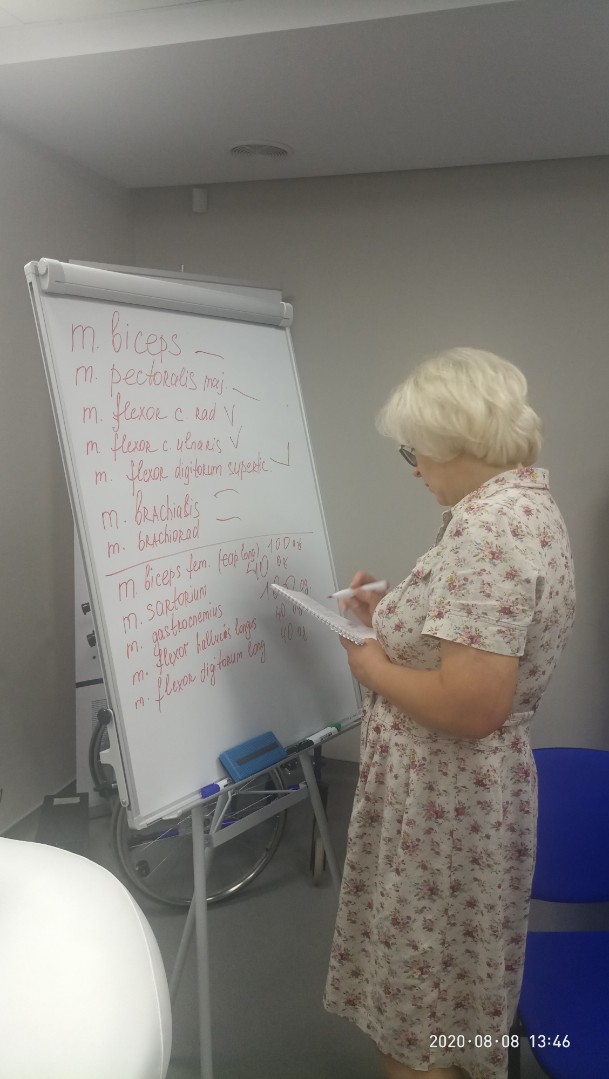 m. biceps —
m. pectoralis maj —
m. flexor c rad √
m. flexor c. ulnaris √
m. flexor digitorum superfic √
m. BRAchialis
m. bRAchioRAd —
m. biceps fem. (cap long) 100 ag
m. soRtorium 40 ag
m. gastrocnemius 100 ag.
m. flexor hallucis longus 40
m. flexor digitorum long 40 ag
2020·08·08 13:46